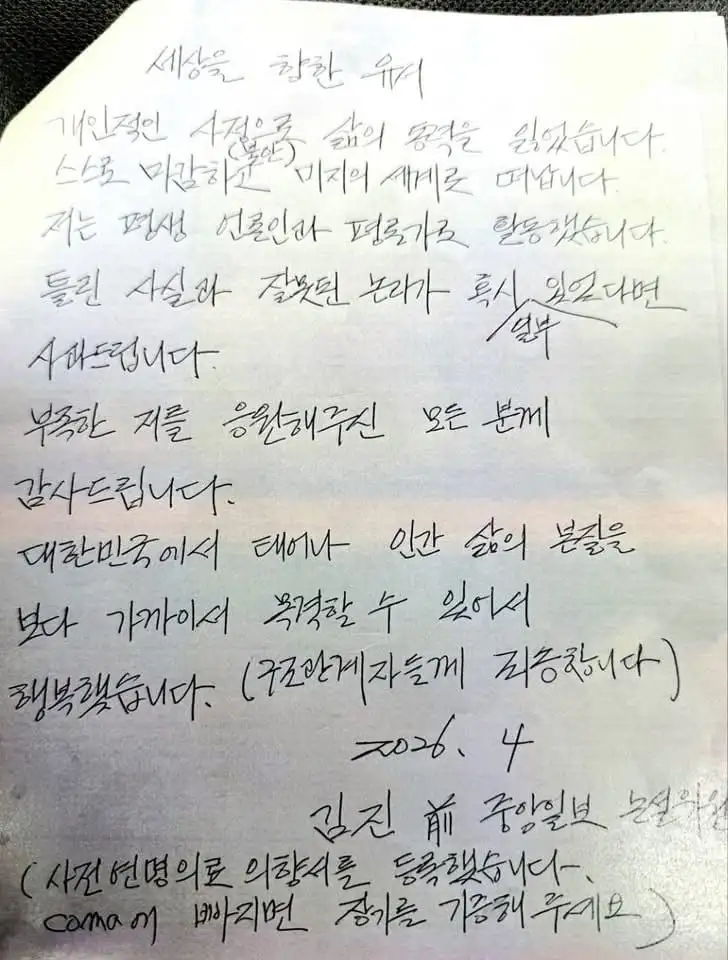 세상을 향한 유서
개인적인 사정으로 삶의 동력을 잃었습니다.
(불안)
스스로 마감하고 미지의 세계로 떠납니다.
저는 평생 언론인과 평론가로 활동했습니다.
틀린 사실과 잘못된 논리가 혹시 있었다면
일부
사과드립니다.
부족한 저를 응원해주신 모든 분께
감사드립니다.
대한민국에서 태어나 인간 삶의 본질을
보다 가까이서 목격할 수 있어서
행복했습니다. (구조관계자들께 죄송합니다)
2026. 4
김진 前 중앙일보 논설위원
(사전연명의료 의향서를 등록했습니다.
coma에 빠지면 장기를 기증해 주세요)